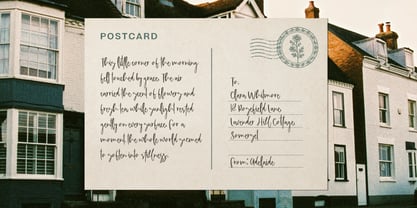 POSTCARD
This little corner of the morning
felt touched by grace. The air
carried the scent of flowers and
fresh tea while sunlight rested
gently on every surface. For a
moment the whole world seemed
to soften into stillness.
To,
Clara Whitmore
12 Rosefield Lane
Lavender Hill Cottage
Somerset
From: Adelaide